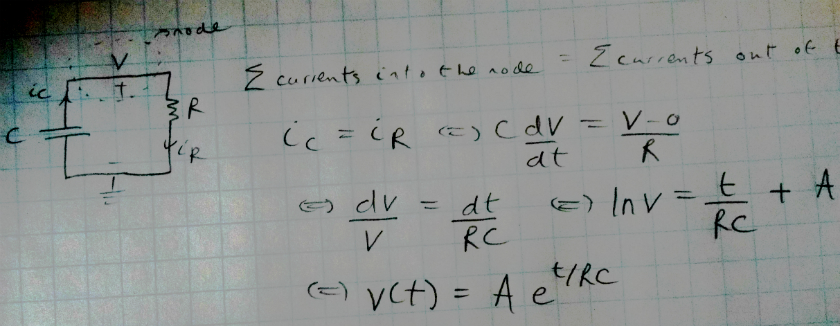 node
V
ic
+
R
C
iR
-
Σ currents into the node = Σ currents out of t
ic = iR <=> C dV/dt = V-0/R
<=> dV/V = dt/RC <=> lnV = t/RC + A
<=> V(t) = A e^t/RC